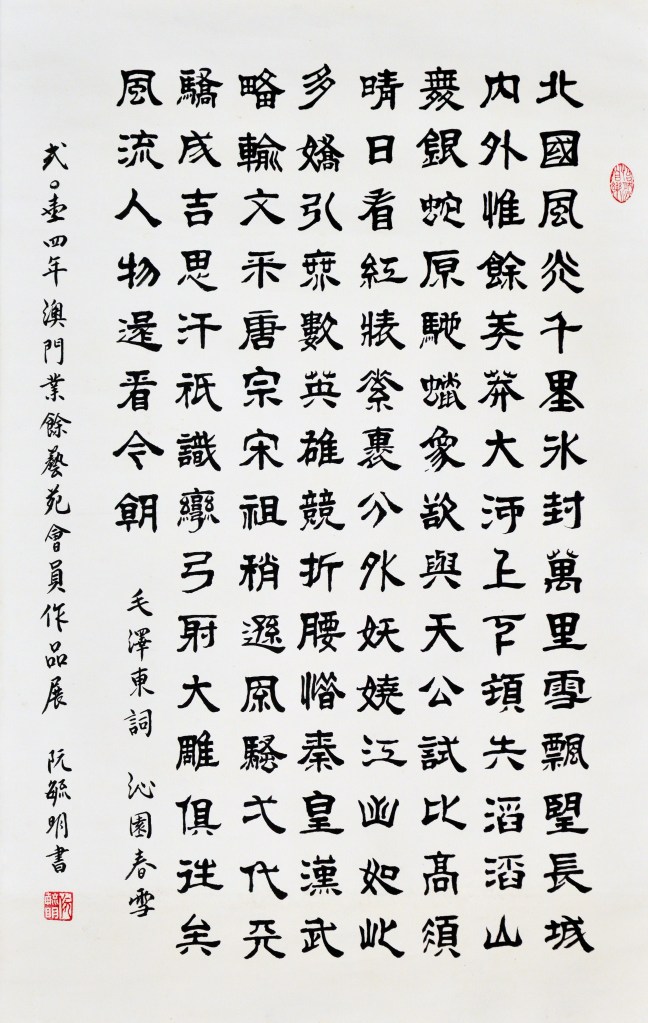 北國風光千里冰封萬里雪飄望長城
内外惟餘莽莽大河上下頓失滔滔山
舞銀蛇原馳蠟象欲與天公試比高須
晴日看紅裝素裹分外妖嬈江山如此
多嬌引無數英雄競折腰惜秦皇漢武
略輸文采唐宗宋祖稍遜風騷弌代天
驕成吉思汗祇識彎弓射大雕俱往矣
風流人物還看今朝
毛澤東詞 沁園春雪
弍〇壹四年澳門業餘藝苑會員作品展 阮毓明書